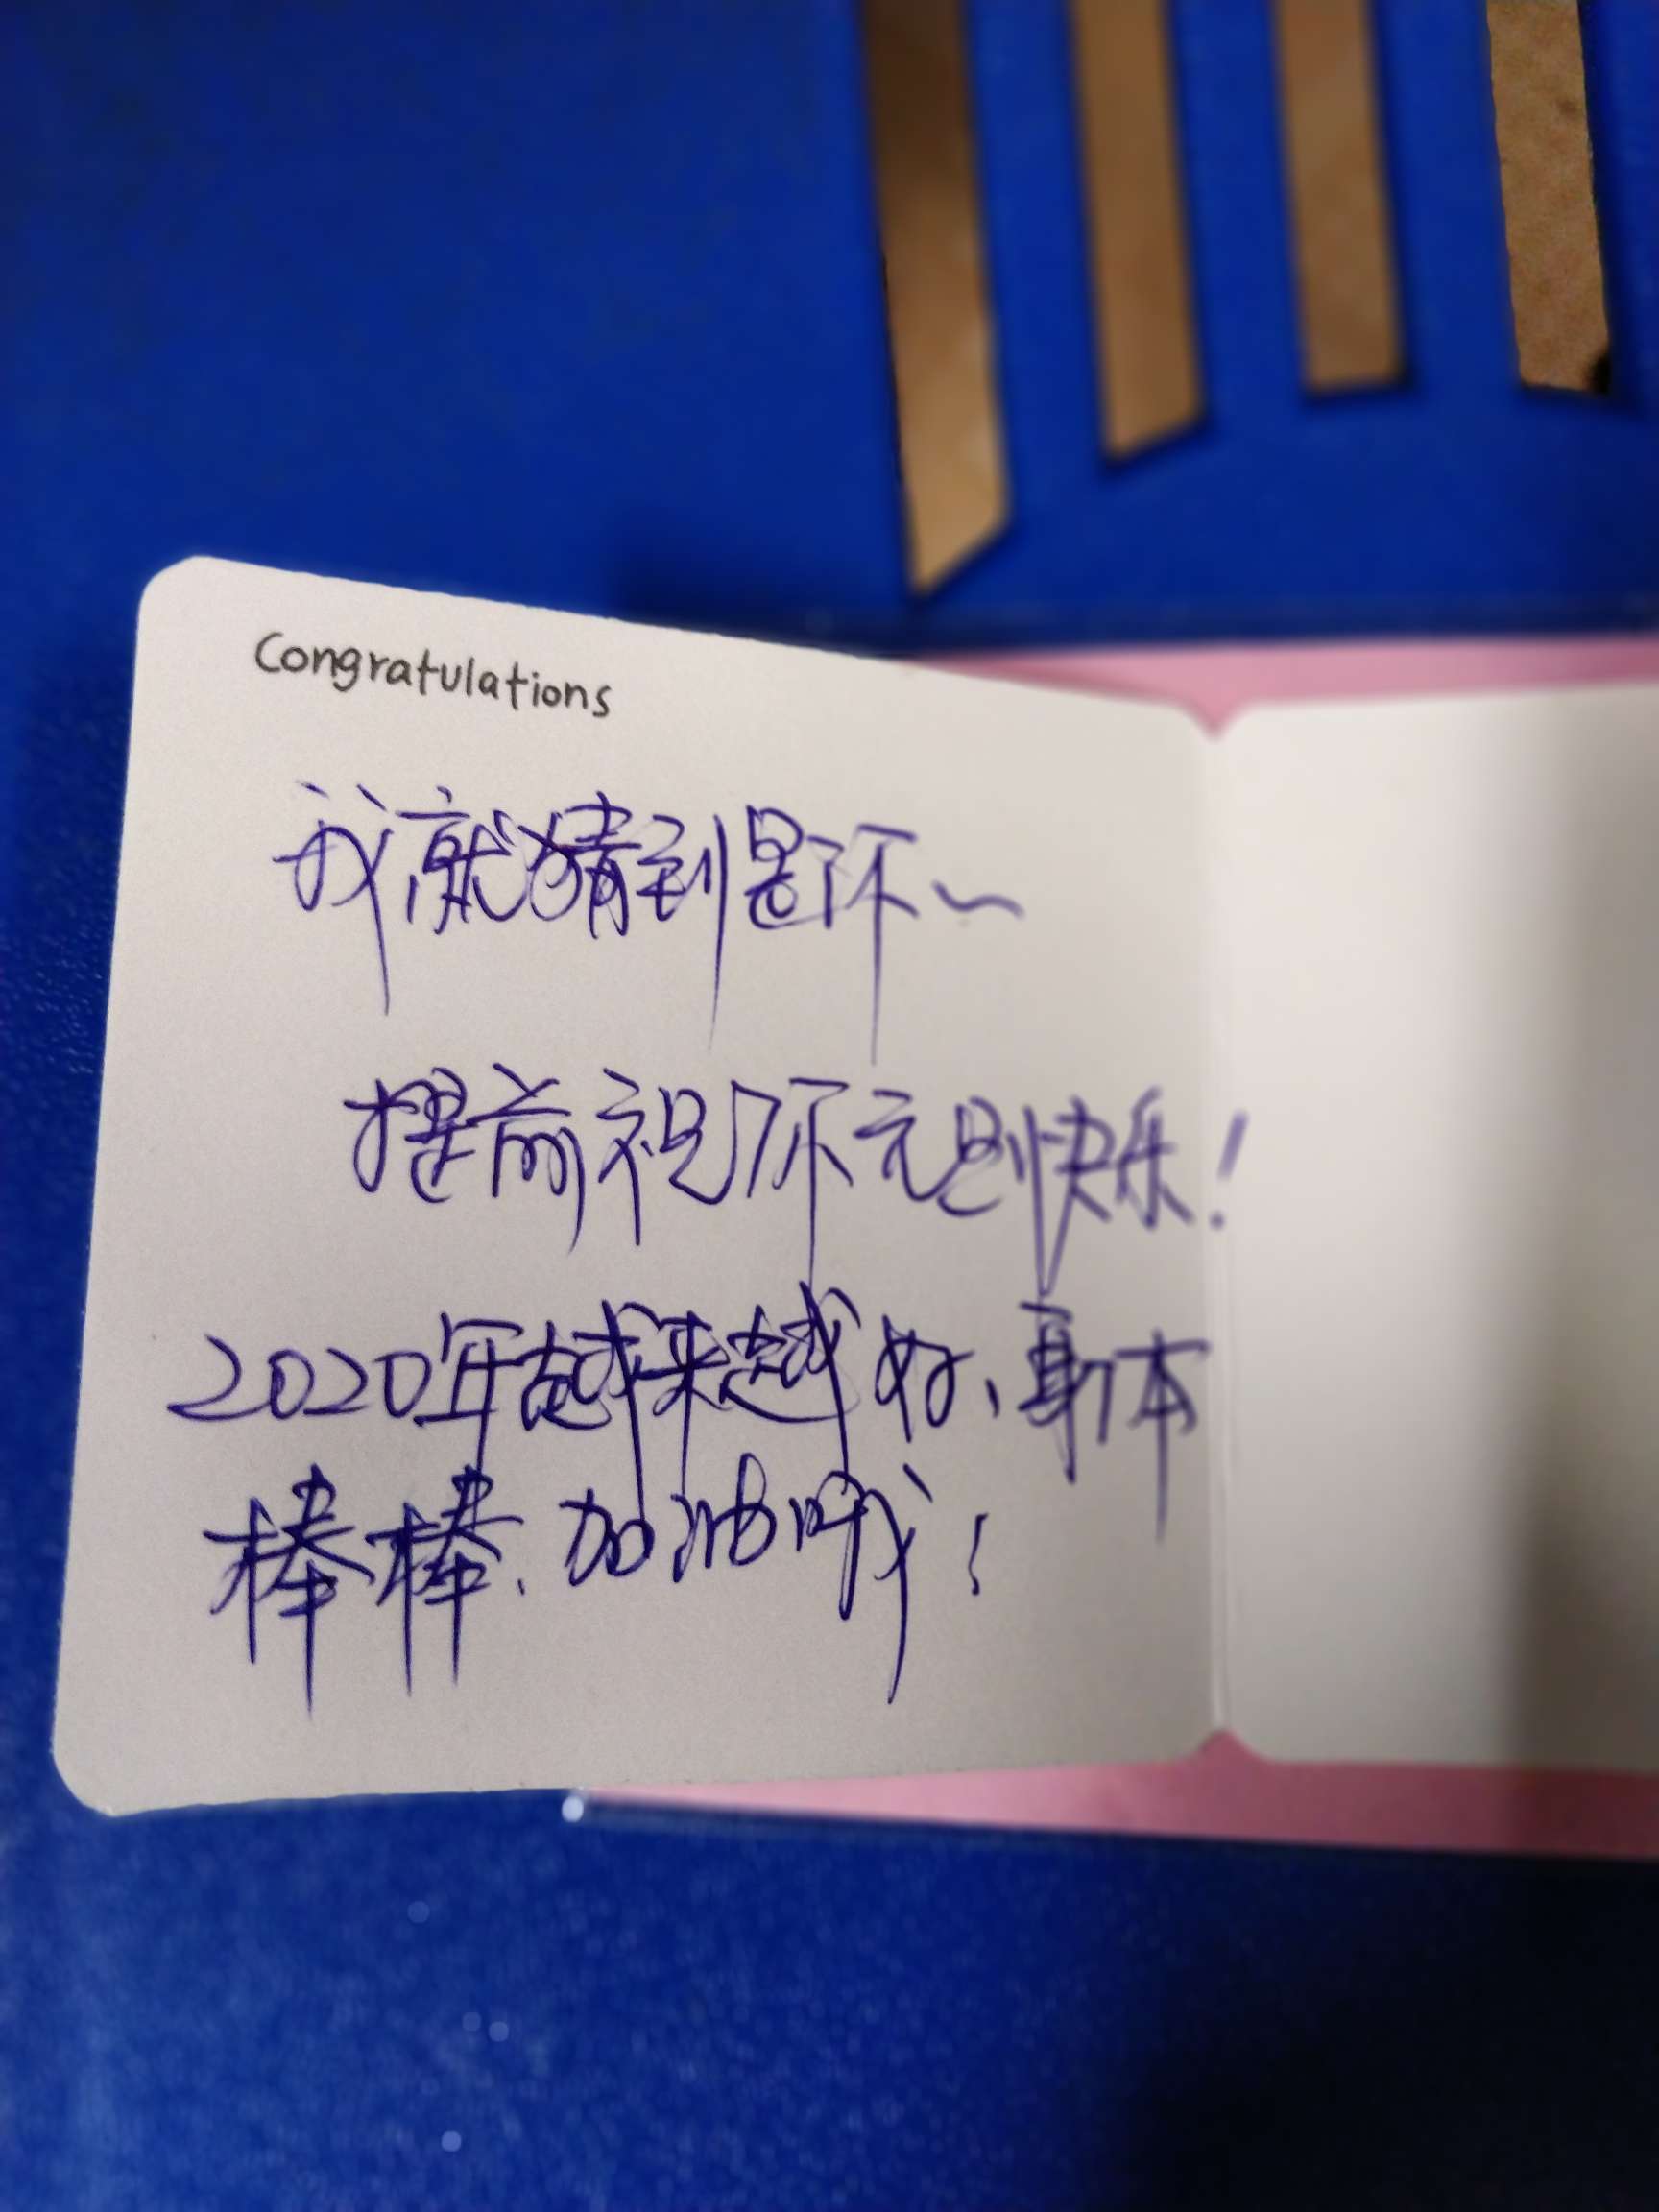 Congratulations
我就猜到是你~
提前祝你元旦快乐!
2020年越来越好、身体
棒棒.加油哦!